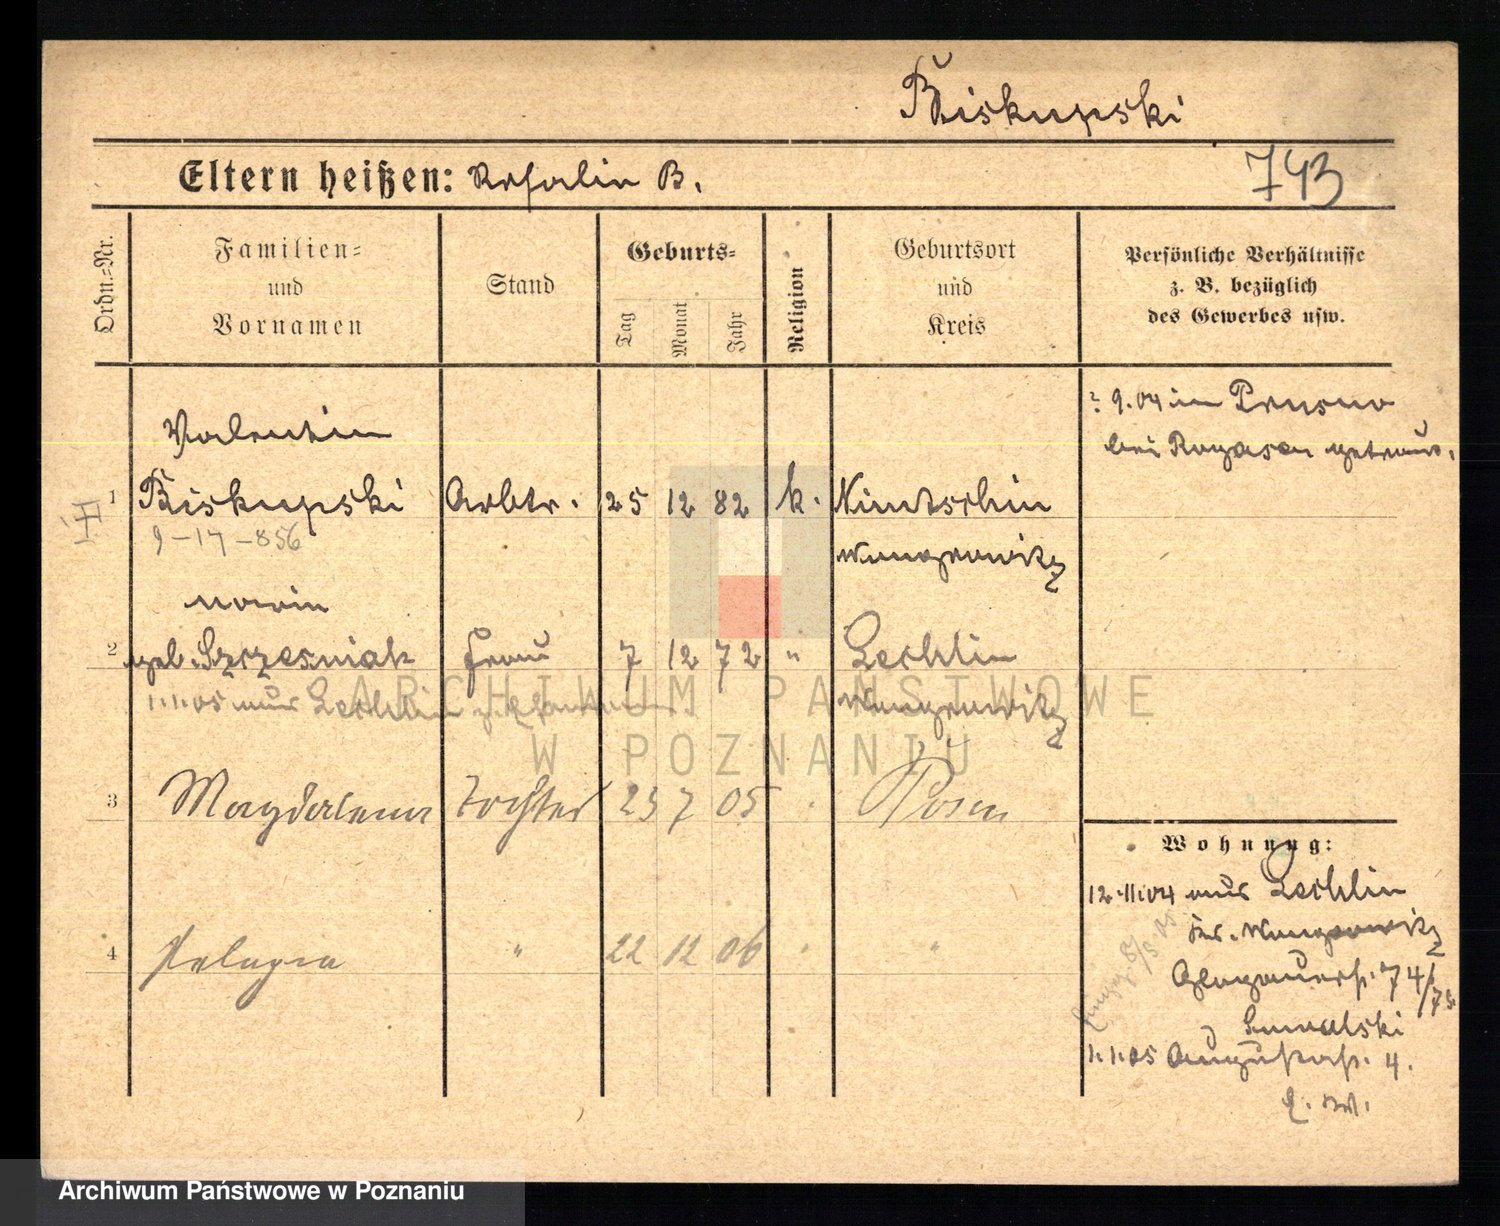 Biskupski
Eltern heißen: Rosalie B.
743
Ordn.-Nr.
Familien-
und
Vornamen
Stand
Geburts-
Tag
Monat
Jahr
Religion
Geburtsort
und
Kreis
Persönliche Verhältnisse
z. B. bezüglich
des Gewerbes usw.
9.04 in Prusno
bei Rogasen getraut.
Valentin
1 Biskupski Arbtr. 25 12 82 k. Nimtschin
9-17-856
Wongrowitz
Marie
2 geb. Szczesniak Frau 7 12 72 " Lechlin
1.1.05 aus Lechlin
Wongrowitz
3 Magdalena Tochter 23 7 05 Posen
4 Pelagia " 22 12 06 "
Wohnung:
12.11.04 aus Lechlin
Kr. Wongrowitz
Glogauerstr. 74/75
Suwalski
1.1.05 Augustastr. 4.
ARCHIWUM PAŃSTWOWE
W POZNANIU
Archiwum Państwowe w Poznaniu